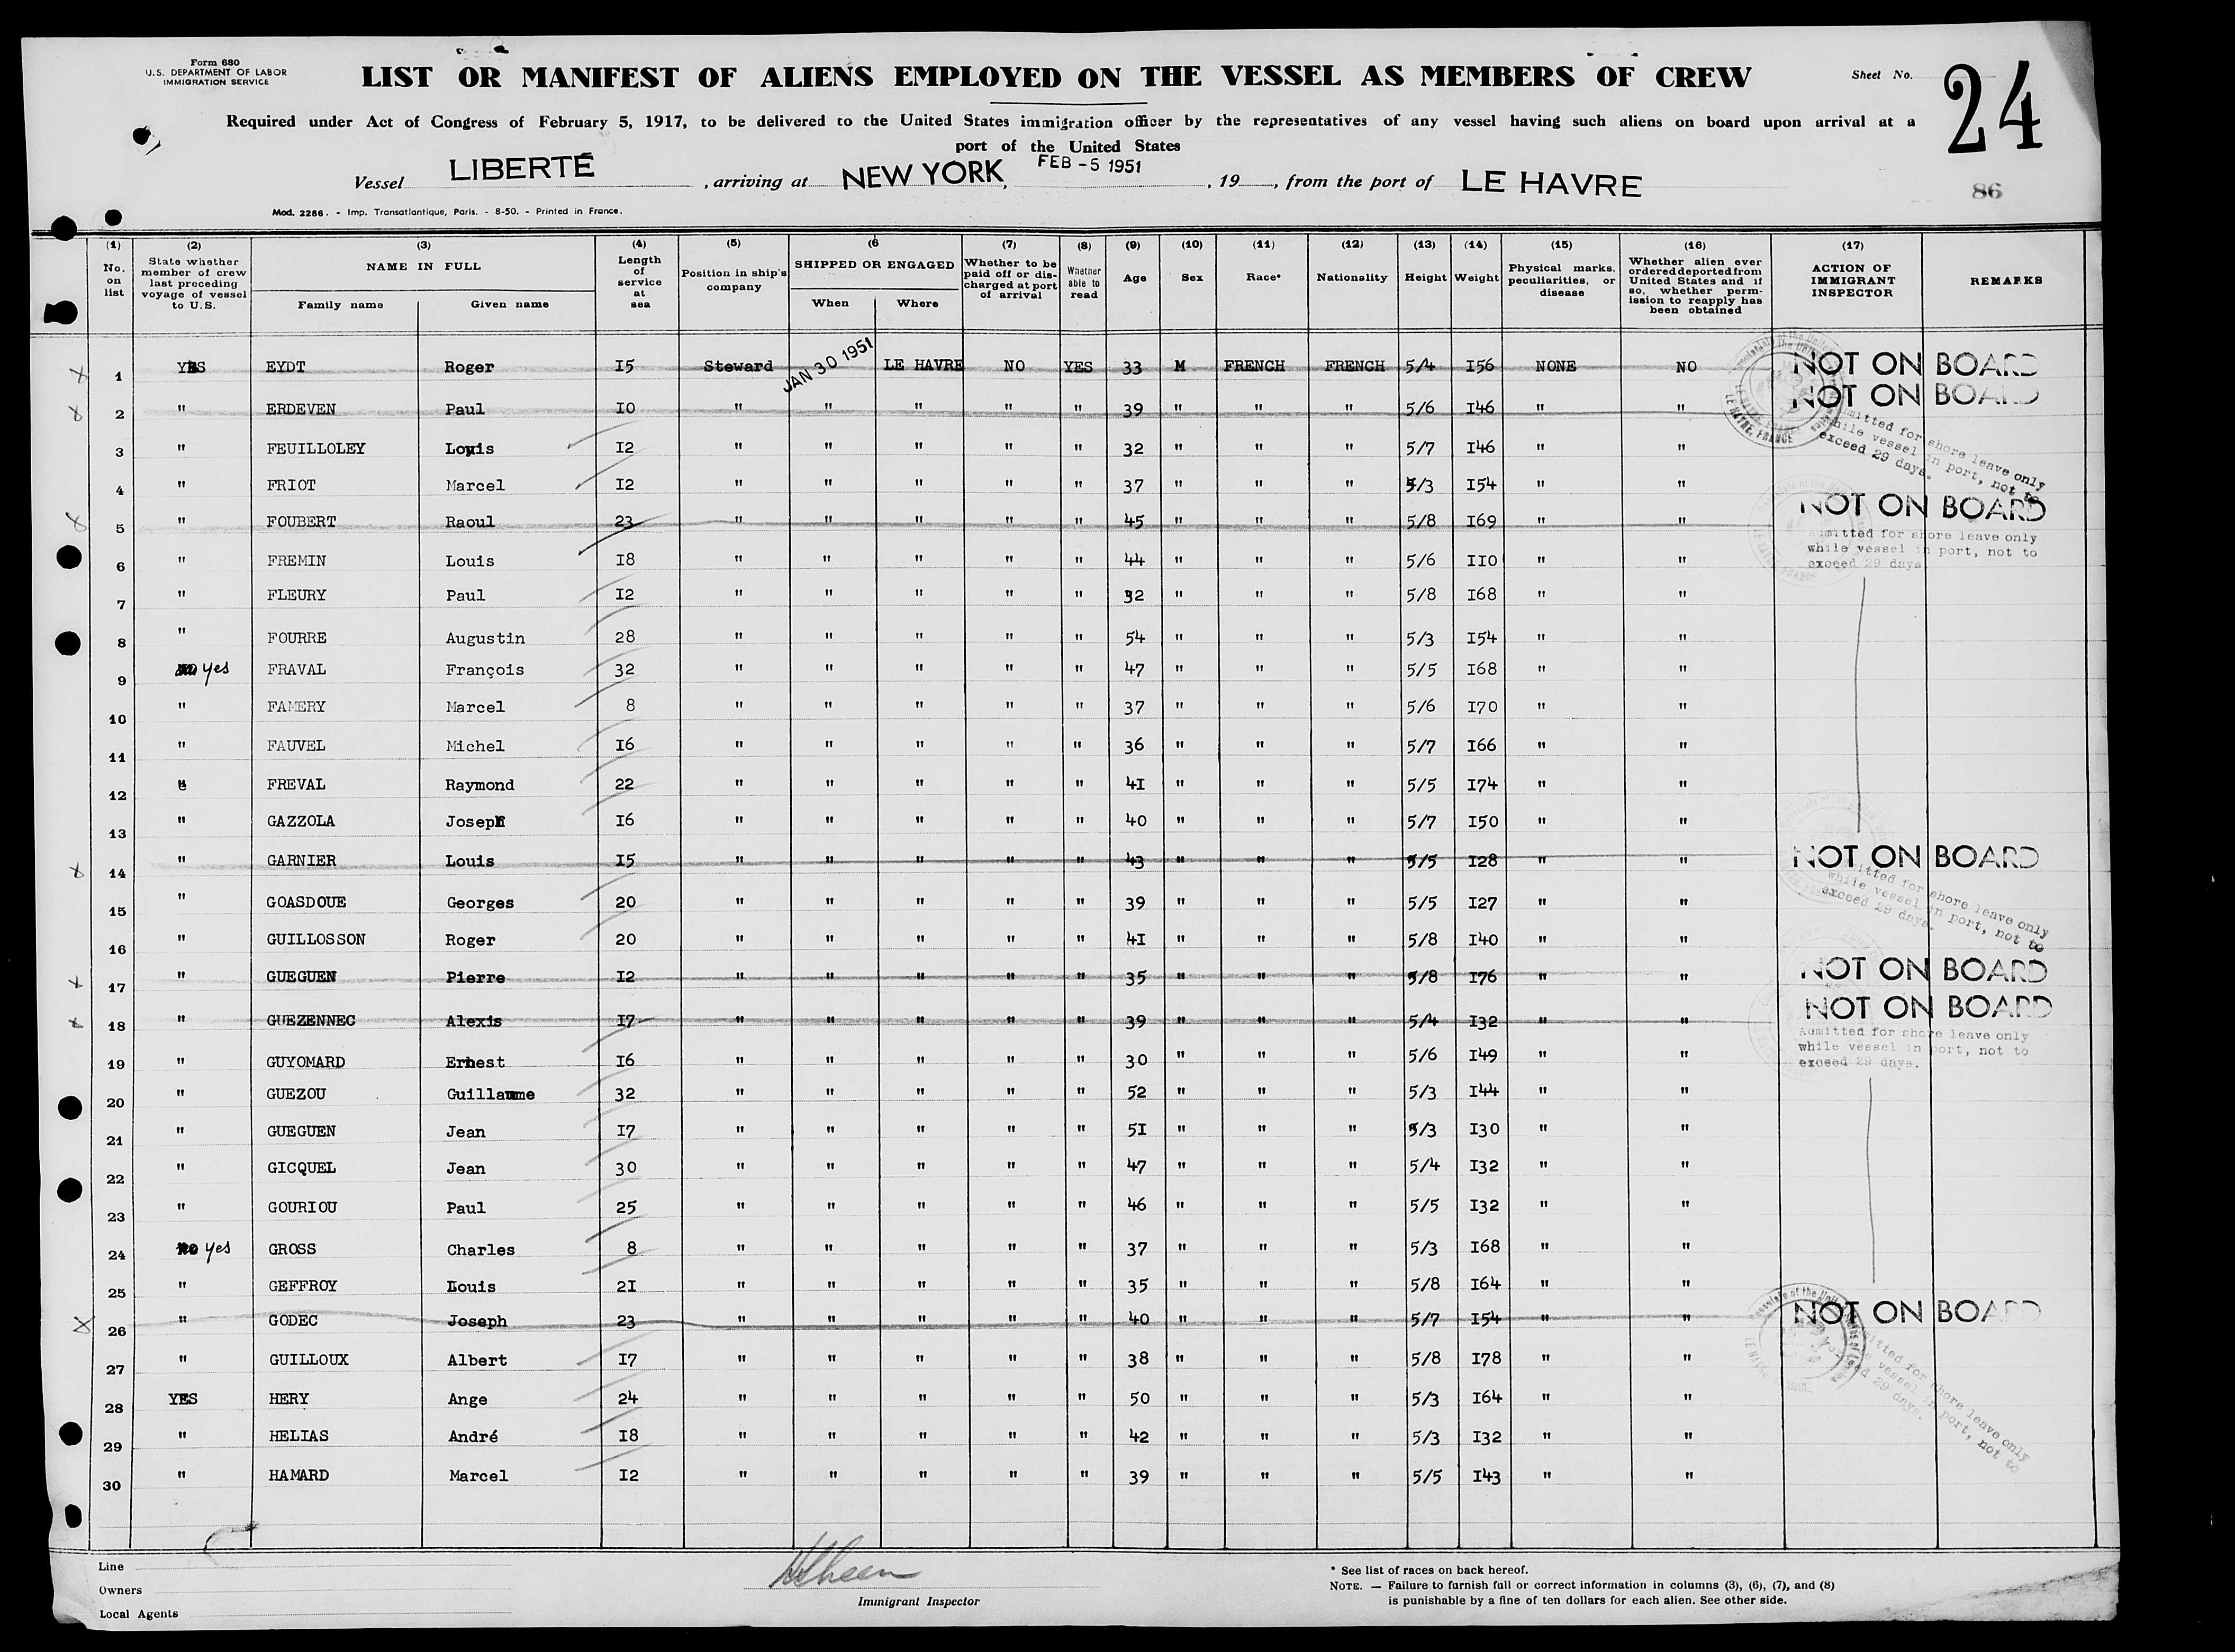 Form 680
U.S. DEPARTMENT OF LABOR
IMMIGRATION SERVICE
LIST OR MANIFEST OF ALIENS EMPLOYED ON THE VESSEL AS MEMBERS OF CREW
Sheet No. 24
Required under Act of Congress of February 5, 1917, to be delivered to the United States immigration officer by the representatives of any vessel having such aliens on board upon arrival at a
port of the United States
Vessel LIBERTÉ, arriving at NEW YORK, FEB -5 1951, 19, from the port of LE HAVRE
86
Mod. 2286. - Imp. Transatlantique, Paris. - 8-50. - Printed in France.
(1) (2) (3) (4) (5) (6 (7) (8) (9) (10) (11) (12) (13) (14) (15) (16) (17)
No. on list | State whether member of crew last preceding voyage of vessel to U.S. | NAME IN FULL Family name Given name | Length of service at sea | Position in ship's company | SHIPPED OR ENGAGED When Where | Whether to be paid off or discharged at port of arrival | Whether able to read | Age | Sex | Race* | Nationality | Height | Weight | Physical marks, peculiarities, or disease | Whether alien ever ordered deported from United States and if so, whether permission to reapply has been obtained | ACTION OF IMMIGRANT INSPECTOR | REMARKS
1 YES EYDT Roger I5 Steward JAN 30 1951 LE HAVRE NO YES 33 M FRENCH FRENCH 5/4 I56 NONE NO NOT ON BOARD
2 " ERDEVEN Paul IO " " " " " 39 " " " 5/6 I46 " " NOT ON BOARD
3 " FEUILLOLEY Louis I2 " " " " " 32 " " " 5/7 I46 " " Admitted for shore leave only while vessel in port, not to exceed 29 days.
4 " FRIOT Marcel I2 " " " " " 37 " " " 5/3 I54 " "
5 " FOUBERT Raoul 23 " " " " " 45 " " " 5/8 I69 " " NOT ON BOARD
6 " FREMIN Louis I8 " " " " " 44 " " " 5/6 IIO " " Admitted for shore leave only while vessel in port, not to exceed 29 days
7 " FLEURY Paul I2 " " " " " 32 " " " 5/8 I68 " "
8 " FOURRE Augustin 28 " " " " " 54 " " " 5/3 I54 " "
9 yes FRAVAL François 32 " " " " " 47 " " " 5/5 I68 " "
10 " FAMERY Marcel 8 " " " " " 37 " " " 5/6 I70 " "
11 " FAUVEL Michel I6 " " " " " 36 " " " 5/7 I66 " "
12 " FREVAL Raymond 22 " " " " " 4I " " " 5/5 I74 " "
13 " GAZZOLA Joseph I6 " " " " " 40 " " " 5/7 I50 " "
14 " GARNIER Louis I5 " " " " " 43 " " " 5/5 I28 " " NOT ON BOARD
15 " GOASDOUE Georges 20 " " " " " 39 " " " 5/5 I27 " " Admitted for shore leave only while vessel in port, not to exceed 29 days.
16 " GUILLOSSON Roger 20 " " " " " 4I " " " 5/8 I40 " "
17 " GUEGUEN Pierre I2 " " " " " 35 " " " 5/8 I76 " " NOT ON BOARD
18 " GUEZENNEC Alexis I7 " " " " " 39 " " " 5/4 I32 " " NOT ON BOARD
19 " GUYOMARD Ernest I6 " " " " " 30 " " " 5/6 I49 " " Admitted for shore leave only while vessel in port, not to exceed 29 days.
20 " GUEZOU Guillaume 32 " " " " " 52 " " " 5/3 I44 " "
21 " GUEGUEN Jean I7 " " " " " 5I " " " 5/3 I30 " "
22 " GICQUEL Jean 30 " " " " " 47 " " " 5/4 I32 " "
23 " GOURIOU Paul 25 " " " " " 46 " " " 5/5 I32 " "
24 no yes GROSS Charles 8 " " " " " 37 " " " 5/3 I68 " "
25 " GEFFROY Louis 2I " " " " " 35 " " " 5/8 I64 " "
26 " GODEC Joseph 23 " " " " " 40 " " " 5/7 I54 " " NOT ON BOARD
27 " GUILLOUX Albert I7 " " " " " 38 " " " 5/8 I78 " " shore leave only vessel in port, not to 29 days.
28 YES HERY Ange 24 " " " " " 50 " " " 5/3 I64 " "
29 " HELIAS André I8 " " " " " 42 " " " 5/3 I32 " "
30 " HAMARD Marcel I2 " " " " " 39 " " " 5/5 I43 " "
Line
Owners
Local Agents
Immigrant Inspector
* See list of races on back hereof.
NOTE. — Failure to furnish full or correct information in columns (3), (6), (7), and (8)
is punishable by a fine of ten dollars for each alien. See other side.